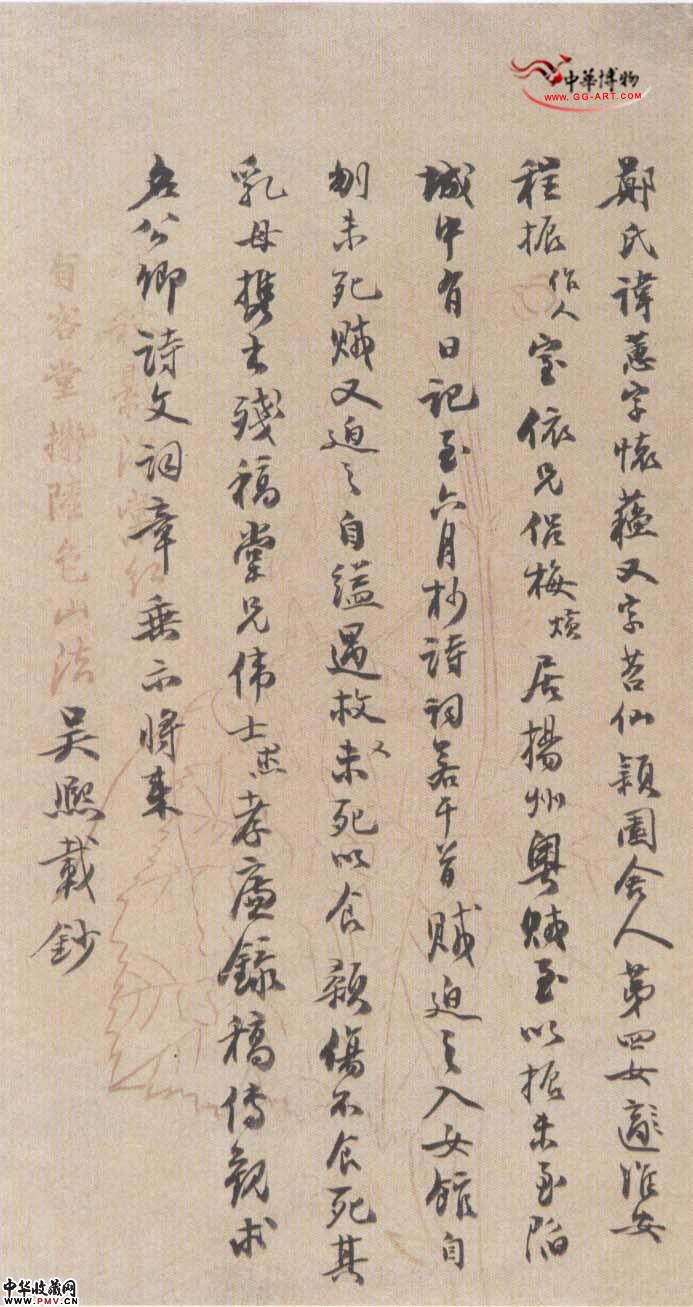 鄭氏諱蕙字懷蘓又字苕仙穎園舍人苐四女適淮安
程振作人室依兄侶梅燌居揚州粵贼至以振未至陷
城中有日記至六月杪詩詞若干首贼迫之入女館自
刎未死贼又迫之自縊遇救又未死以食顙傷不食死其
乳母携出殘稿堂兄伟士孝廉録稿傳觀求
名公卿詩文詞章垂示將来
吴熙載鈔
百
堂
陸包山法
中華博物
www.GG-ART.COM
中华收藏网
WWW.PMV.CN